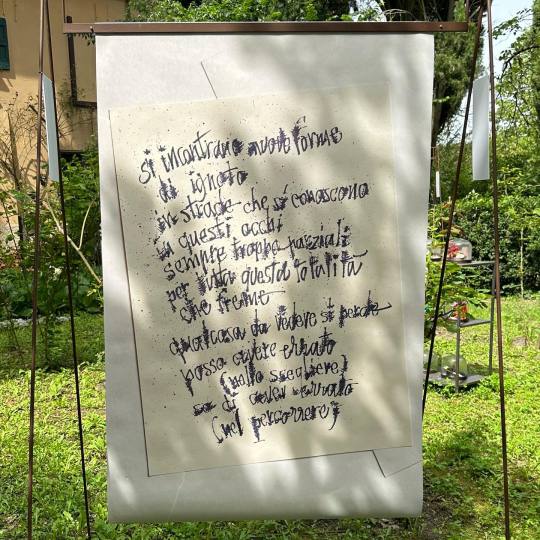 si incontrano nuove forme
di ignoto
in strade che si conoscono
in questi occhi
sempre troppo parziali
per tutta questa totalità
che freme
qualcosa da vedere si perde
posso avere errato
(nello scegliere)
so di aver errato
(nel percorrere)